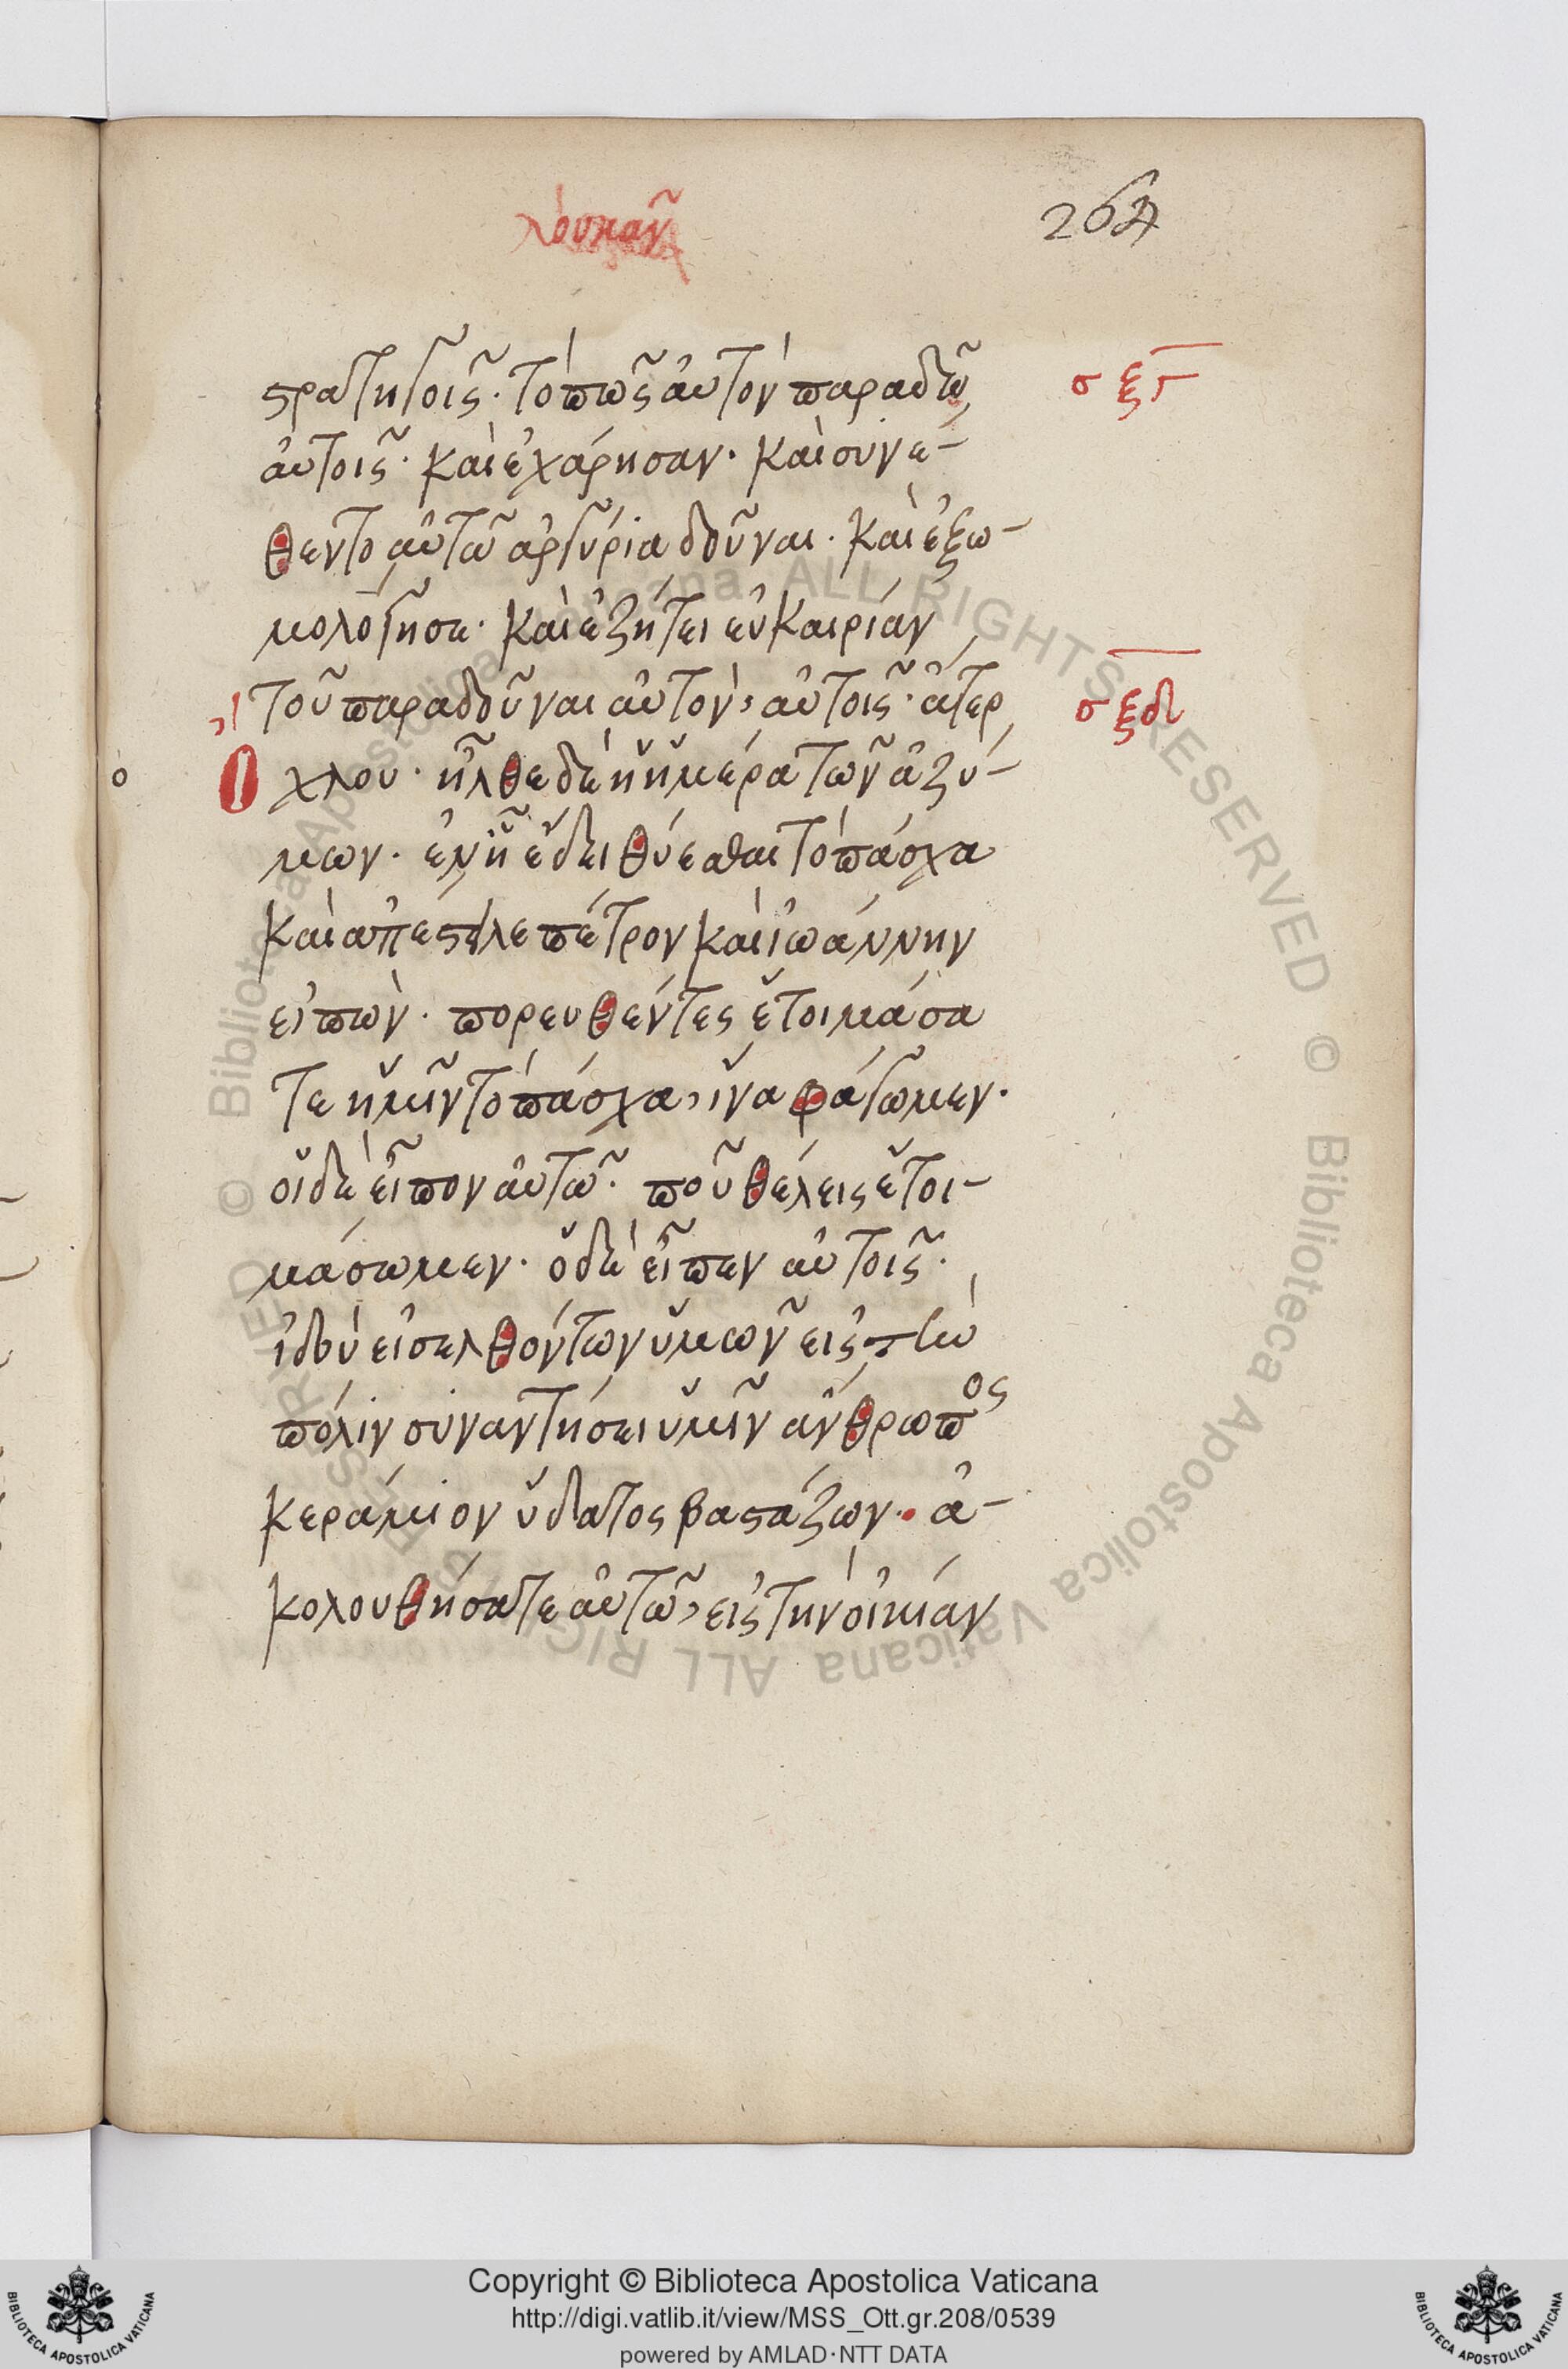 λουκᾶν
264
στρατηγοῖς· τὸ πῶς αὐτὸν παραδῶ
αὐτοῖς· καὶ ἐχάρησαν· καὶ συνέ-
θεντο αὐτῶ ἀργύρια δοῦναι· καὶ ἐξω-
μολόγησε· καὶ ἐζήτει εὐκαιρίαν
τοῦ παραδοῦναι αὐτὸν, αὐτοῖς· ἄτερ
ὄχλου· ἦλθε δὲ ἡ ἡμέρα τῶν ἀζύ-
μων· ἐν ᾗ ἔδει θύεσθαι τὸ πάσχα
καὶ ἀπέστειλε πέτρον καὶ ἰωάννην
εἰπὼν· πορευθέντες ἑτοιμάσα
τε ἡμῖν τὸ πάσχα, ἵνα φάγωμεν·
οἱ δὲ εἶπον αὐτῶ· ποῦ θέλεις ἑτοι-
μάσωμεν· ὁ δὲ εἶπεν αὐτοῖς·
ἰδοὺ εἰσελθόντων ὑμῶν εἰς τὴν
πόλιν συναντήσει ὑμῖν ἄνθρωπος
κεράμιον ὕδατος βαστάζων· ἀ-
κολουθήσατε αὐτῶ, εἰς τὴν οἰκίαν
σξγ
σξδ
© Biblioteca Apostolica Vaticana ALL RIGHTS RESERVED
© Biblioteca Apostolica Vaticana ALL RIGHTS RESERVED
Copyright © Biblioteca Apostolica Vaticana
http://digi.vatlib.it/view/MSS_Ott.gr.208/0539
powered by AMLAD·NTT DATA
BIBLIOTECA APOSTOLICA VATICANA
BIBLIOTECA APOSTOLICA VATICANA